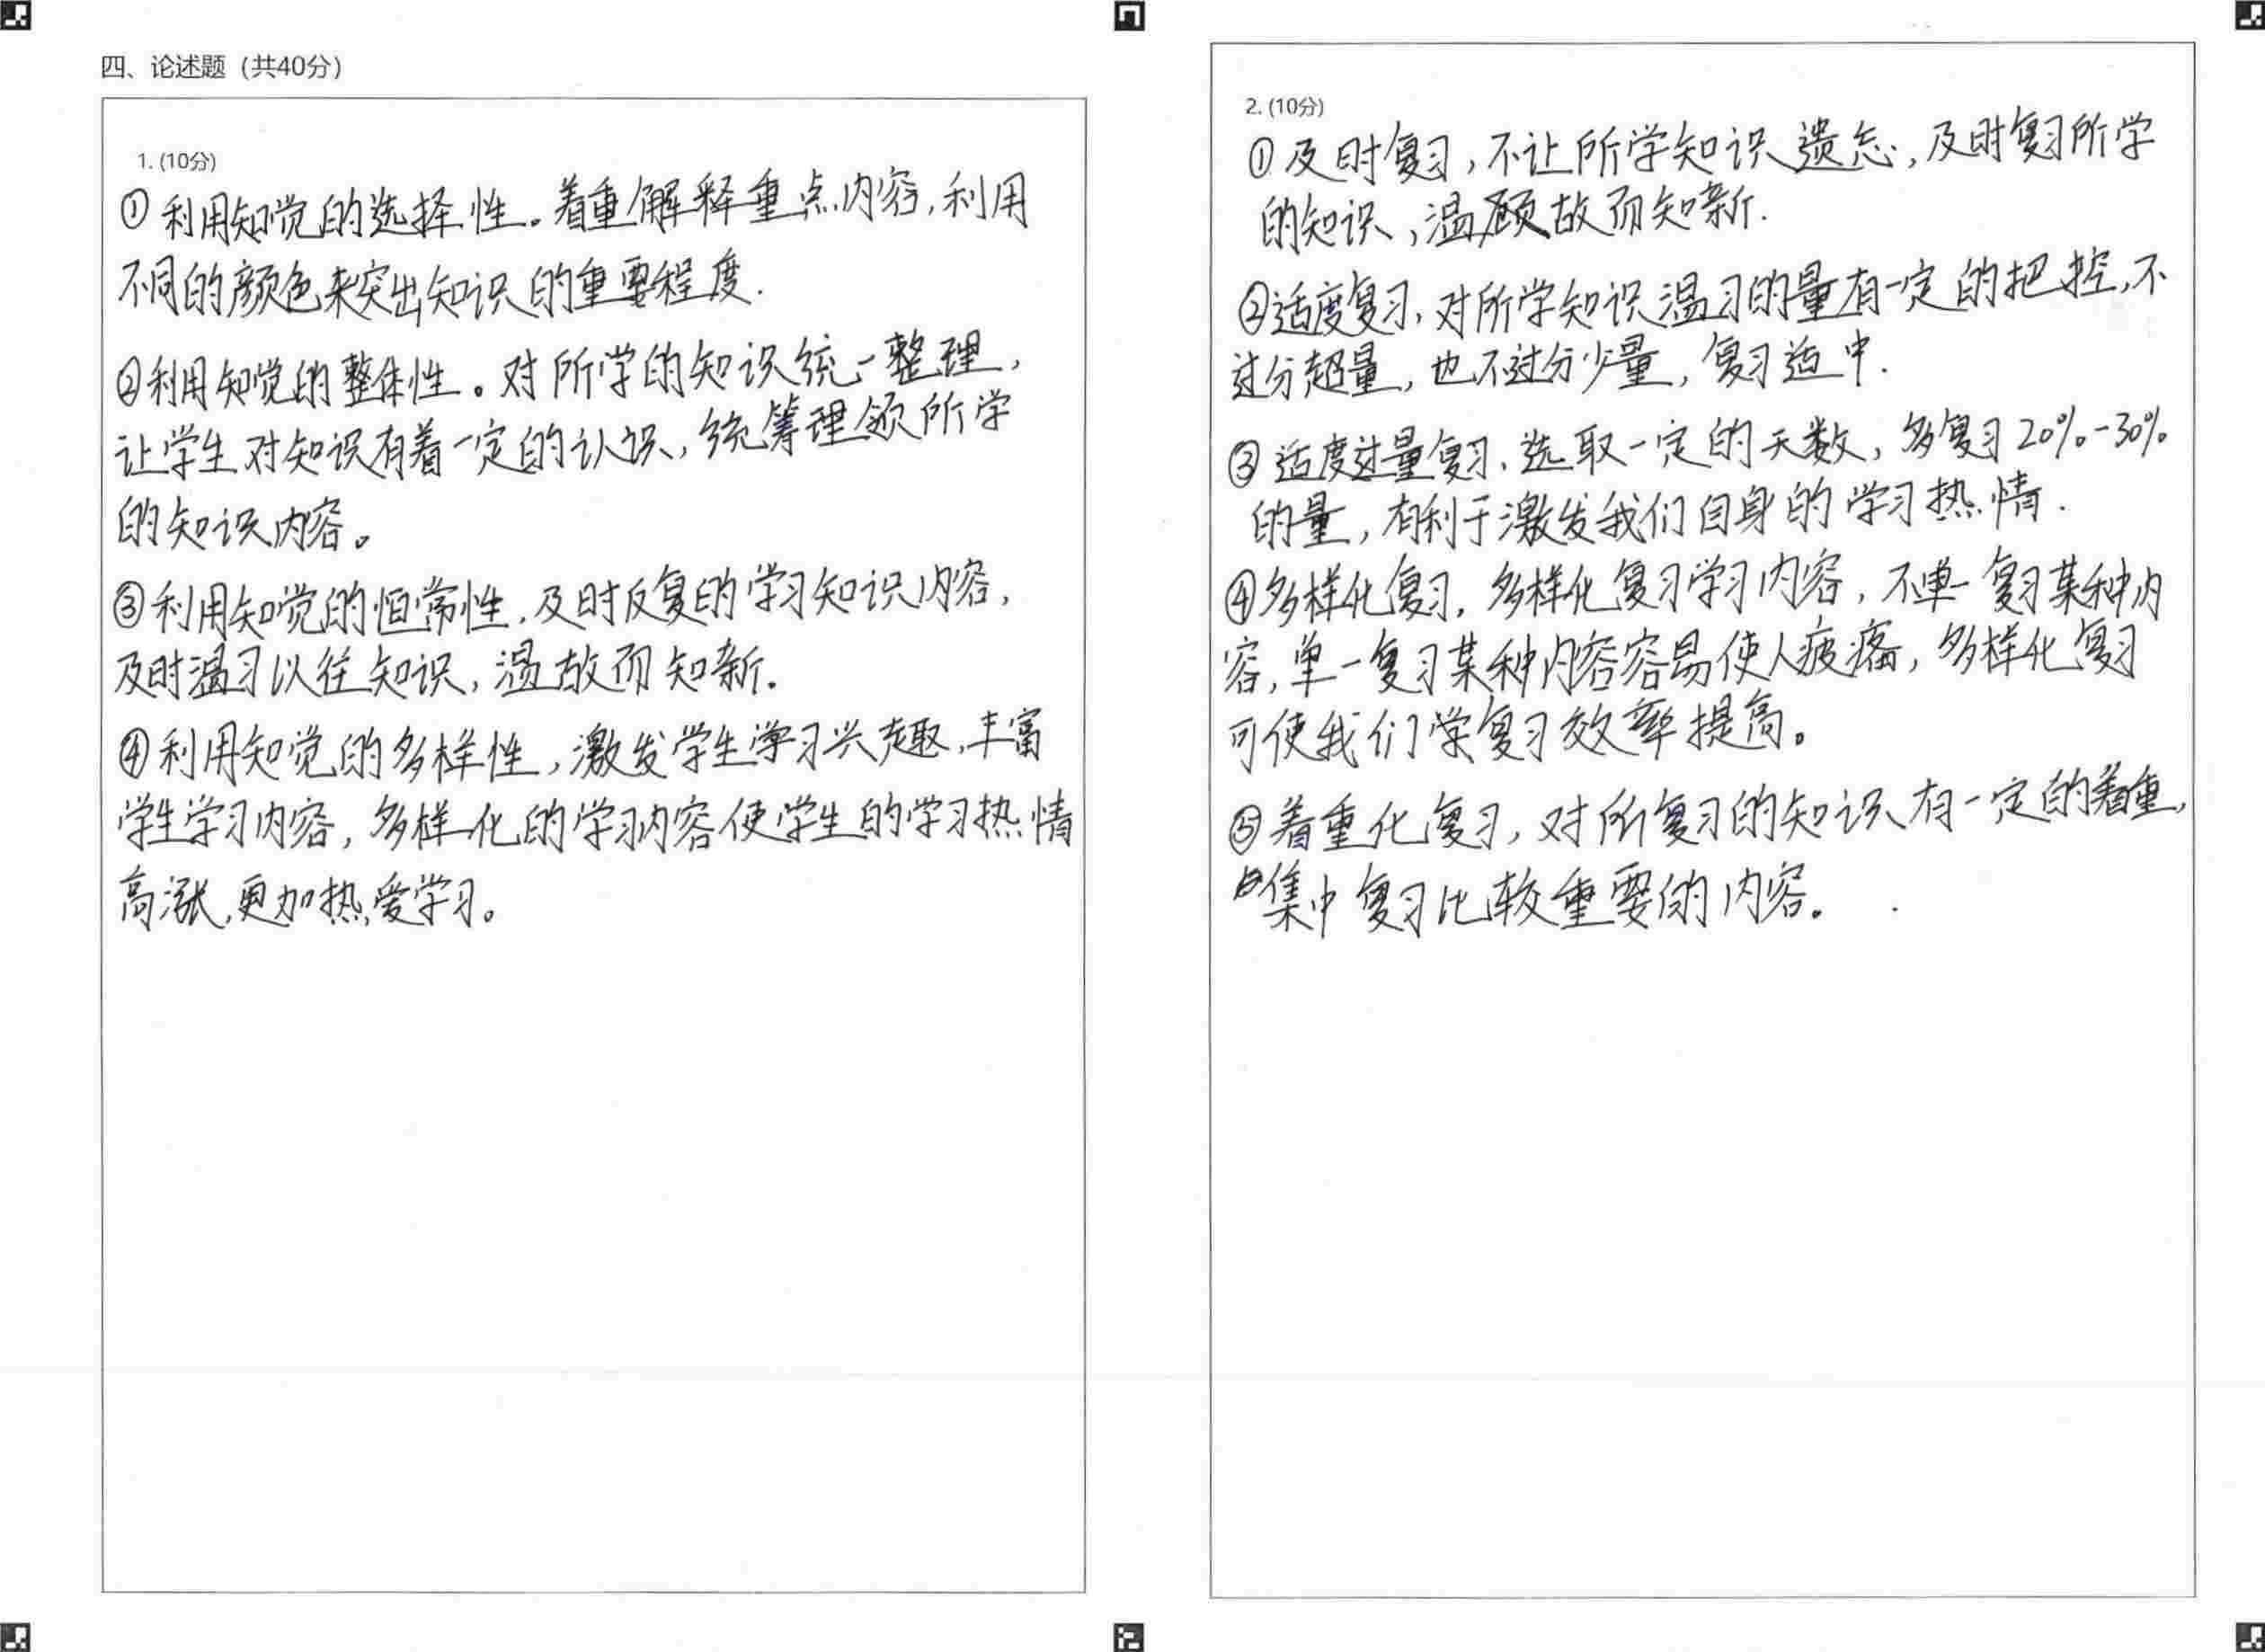 四、论述题（共40分）
1. (10分)
①利用知觉的选择性。着重解释重点内容,利用
不同的颜色来突出知识的重要程度.
②利用知觉的整体性。对所学的知识统一整理,
让学生对知识有着一定的认识,统筹理领所学
的知识内容。
③利用知觉的恒常性,及时反复的学习知识内容,
及时温习以往知识,温故而知新.
④利用知觉的多样性,激发学生学习兴趣,丰富
学生学习内容,多样化的学习内容使学生的学习热情
高涨,更加热爱学习。
2. (10分)
①及时复习,不让所学知识遗忘,及时复习所学
的知识,温顾故而知新.
②适度复习,对所学知识温习的量有一定的把控,不
过分超量,也不过分少量,复习适中.
③适度过量复习,选取一定的天数,多复习20%-30%
的量,有利于激发我们自身的学习热情.
④多样化复习,多样化复习学习内容,不单一复习某种内
容,单一复习某种内容容易使人疲痛,多样化复习
可使我们学复习效率提高。
⑤着重化复习,对所复习的知识有一定的着重,
集中复习比较重要的内容。